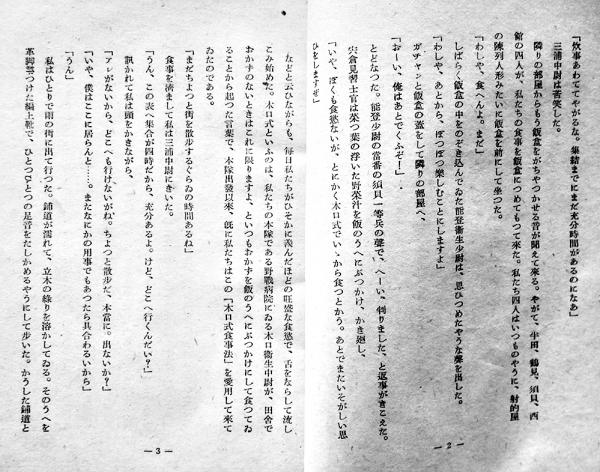 「炊事あわててやがるな。集結までにまだ充分時間があるのになあ」
三浦中尉は苦笑した。
隣りの部屋からもう飯盒をがちやつかせる音が聞えて來る。やがて、牛田、鶴見、須貝、西
館の四人が、私たちの食事を飯盒につめてもつて來た。私たち四人はいつものやうに、射的屋
の陳列人形みたいに飯盒を前にして坐つた。
「わしや、食へんよ。まだ」
しばらく飯盒の中をのぞき込んでゐた能登衞生少尉は、思ひつめたやうな聲を出した。
「わしや、あとから、ぽつぽつ樂しむことにしますよ」
ガチヤンと飯盒の蓋をして隣りの部屋へ、
「おーい、俺はあとでくふぞ！」
とどなつた。能登少尉の當番の須貝一等兵の聲で、へーい、判りました、と返事がきこえた。
宍倉見習士官は菜つ葉の浮いた野菜汁を飯のうへにぶつかけ、かき廻し、
「いや、ぼくも食慾ないが、とにかく木口式でいゝから食つとかう。あとでまたいそがしい思
ひをしますぞ」
― 2 ―
などと云ひながらも、毎日私たちがひそかに羨んだほどの旺盛な食慾で、舌をならして流し
こみ始めた。木口式といふのは、私たちの本隊である野戰病院にゐる木口衞生中尉が、田舎で
おかずのないときはこれに限りますよ、といつもおかずを飯のうへにぶつかけにして食つてゐ
ることから起つた言葉で、本隊出發以來、旣に私たちはこの「木口式食事法」を愛用して來て
ゐたのである。
「まだちよつと街を散歩するぐらゐの時間あるね」
食事を濟まして私は三浦中尉にきいた。
「うん、この表へ集合が四時だから、充分あるよ。けど、どこへ行くんだい？」
訊かれて私は頭をかきながら、
「アレがないから、どこへも行けないがね。ちよつと散歩だ、本當に。出ないか？」
「いや、僕はここに居らんと……。またなにかの用事でもあつたら具合わるいから」
「うん」
私はひとりで雨の街に出て行つた。鋪道が濡れて、立木の綠りを溶かしてゐる。そのうへを
革脚絆つけた編上靴で、ひとつひとつの足音をたしかめるやうにして歩いた。かうした鋪道と
― 3 ―